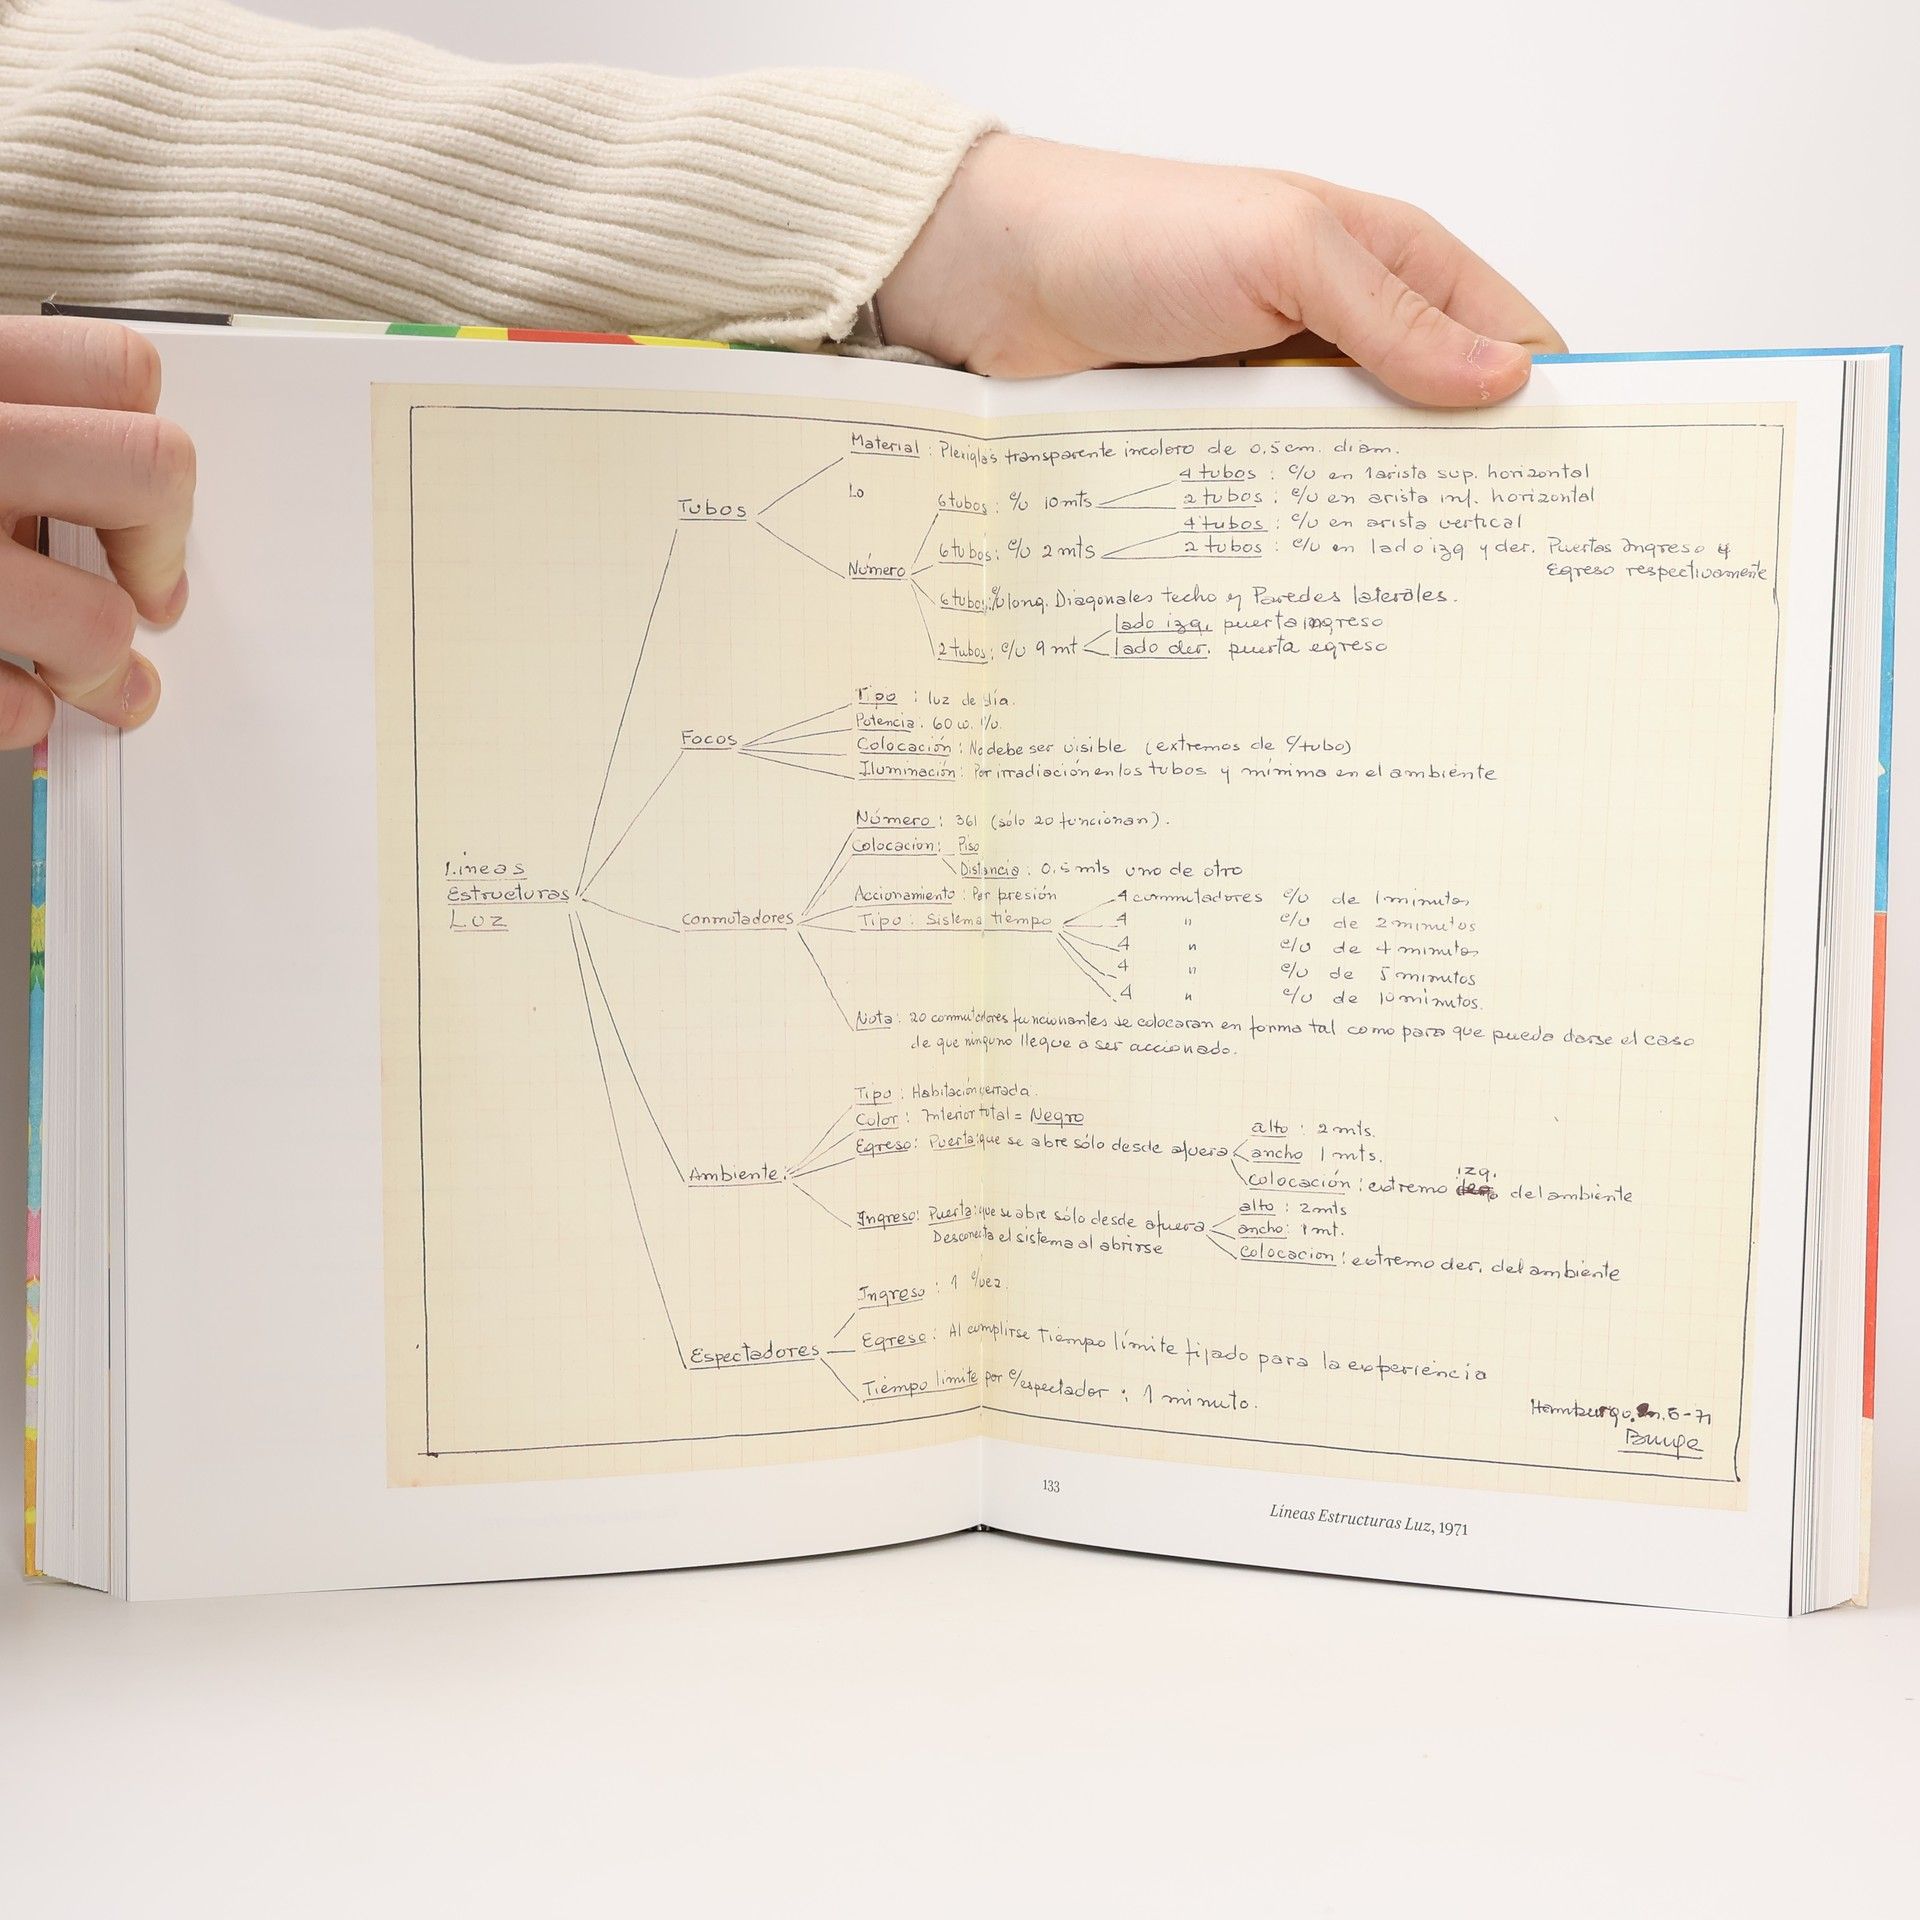 Material : Plexiglas transparente incoloro de 0,5 cm. diam.
4 tubos : c/u en 1 arista sup. horizontal
Lo
6 tubos : c/u 10 mts
2 tubos : c/u en arista inf. horizontal
Tubos
4 tubos : c/u en arista vertical
6 tubos : c/u 2 mts
2 tubos : c/u en lado izq y der. Puertas Ingreso y
Número
Egreso respectivamente
6 tubos : long. Diagonales techo y Paredes laterales.
lado izq. puerta ingreso
2 tubos : c/u 9 mt
lado der. puerta egreso
Tipo : luz de día.
Potencia : 60 w. c/u.
Focos
Colocación : No debe ser visible (extremos de c/tubo)
Iluminación : Por irradiación en los tubos y mínima en el ambiente
Número : 361 (sólo 20 funcionan).
Colocacion : Piso
Distancia : 0,5 mts uno de otro
Líneas
Estructuras
Luz
Accionamiento : Por presión
4 conmutadores c/u de 1 minuto
Conmutadores
Tipo : Sistema tiempo
4 " c/u de 2 minutos
4 " c/u de 4 minutos
4 " c/u de 5 minutos
4 " c/u de 10 minutos.
Nota : 20 conmutadores funcionantes se colocaran en forma tal como para que pueda darse el caso
de que ninguno llegue a ser accionado.
Tipo : Habitación cerrada.
Color : Interior total = Negro
alto : 2 mts.
Egreso : Puerta : que se abre sólo desde afuera
ancho 1 mts.
Ambiente :
izq.
colocación : extremo del ambiente
alto : 2 mts
Ingreso : Puerta : que se abre sólo desde afuera
ancho : 1 mt.
Desconecta el sistema al abrirse
colocacion : extremo der. del ambiente
Ingreso : 1 c/vez.
Egreso : Al cumplirse tiempo límite fijado para la experiencia
Espectadores
Tiempo limite por c/espectador : 1 minuto.
Hamburgo. 6-71
Bunge
133
Líneas Estructuras Luz, 1971